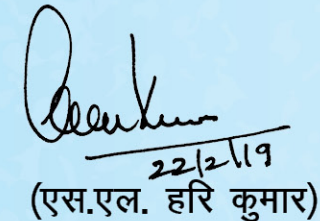 22/2/19
(एस.एल. हरि कुमार)